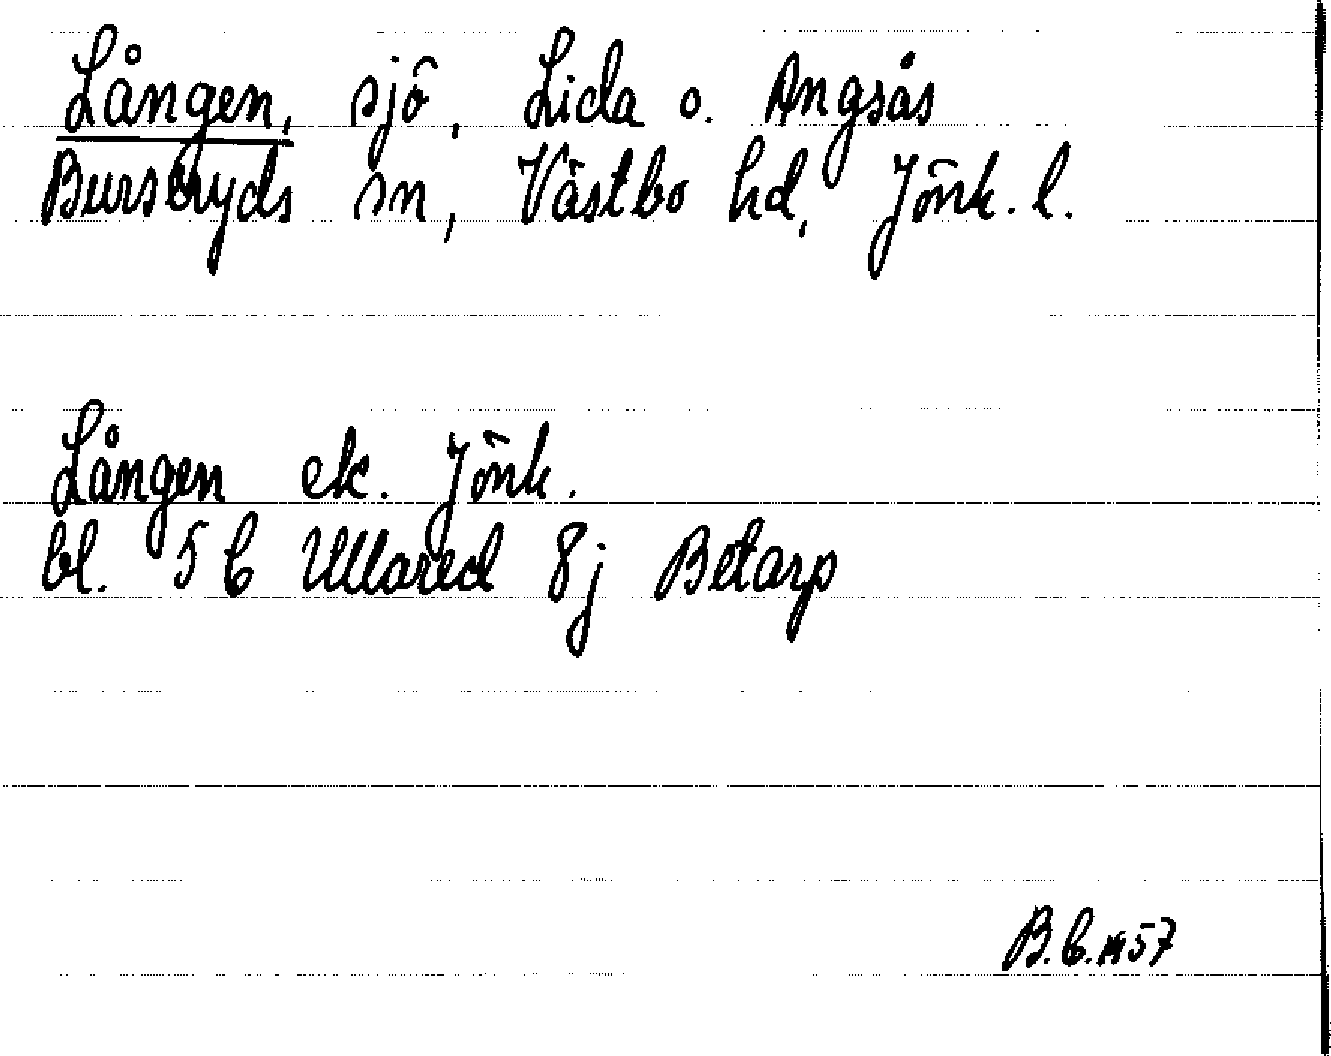 Lången, sjö, Lida o. Angsås
Burseryds sn, Västbo hd, Jönk. l.
Lången ek. Jönk.
bl. 5 C Ullared 8j Betarp
B.C. 1957